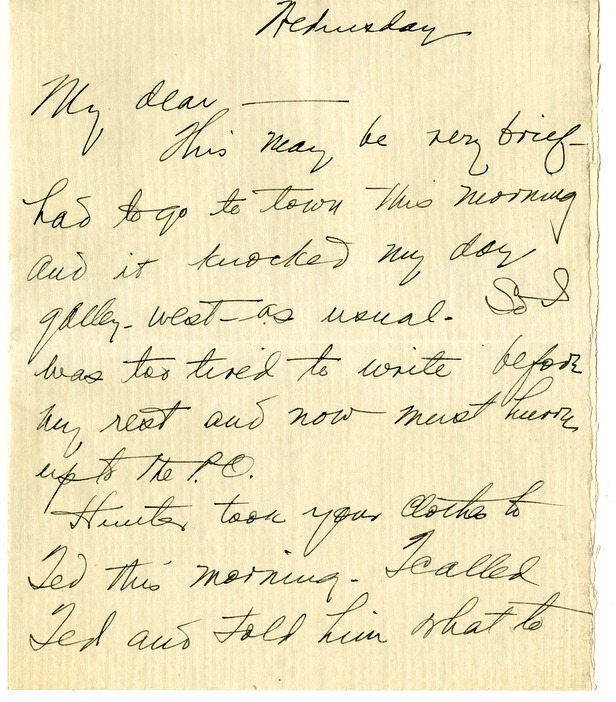 Wednesday
My dear ———
This may be very brief—
had to go to town this morning
and it knocked my day
galley-west—as usual. So I
was too tired to write before
my rest and now must hurry
up to the P.O.
Hunter took your clothes to
Ted this morning. I called
Ted and told him what to